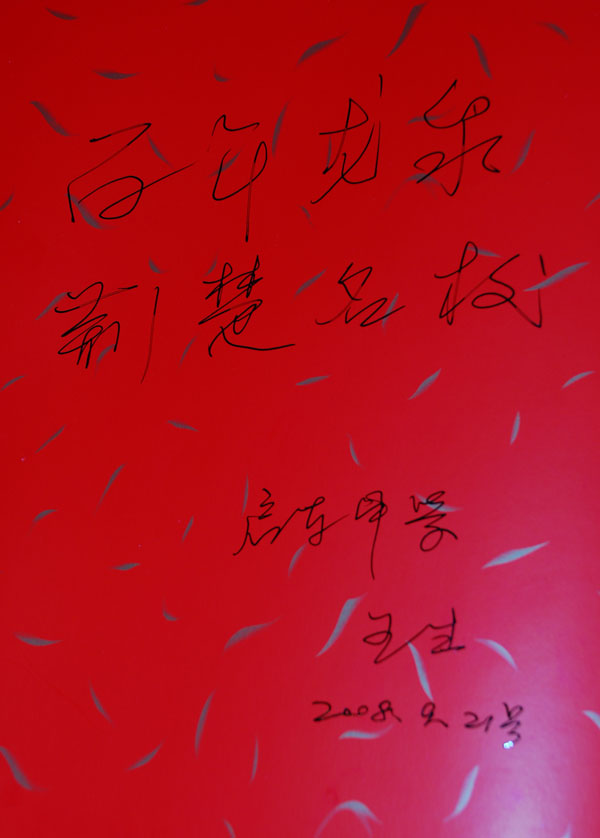 百年龙泉
荆楚名校
启东中学
王生
2008. 9. 21号